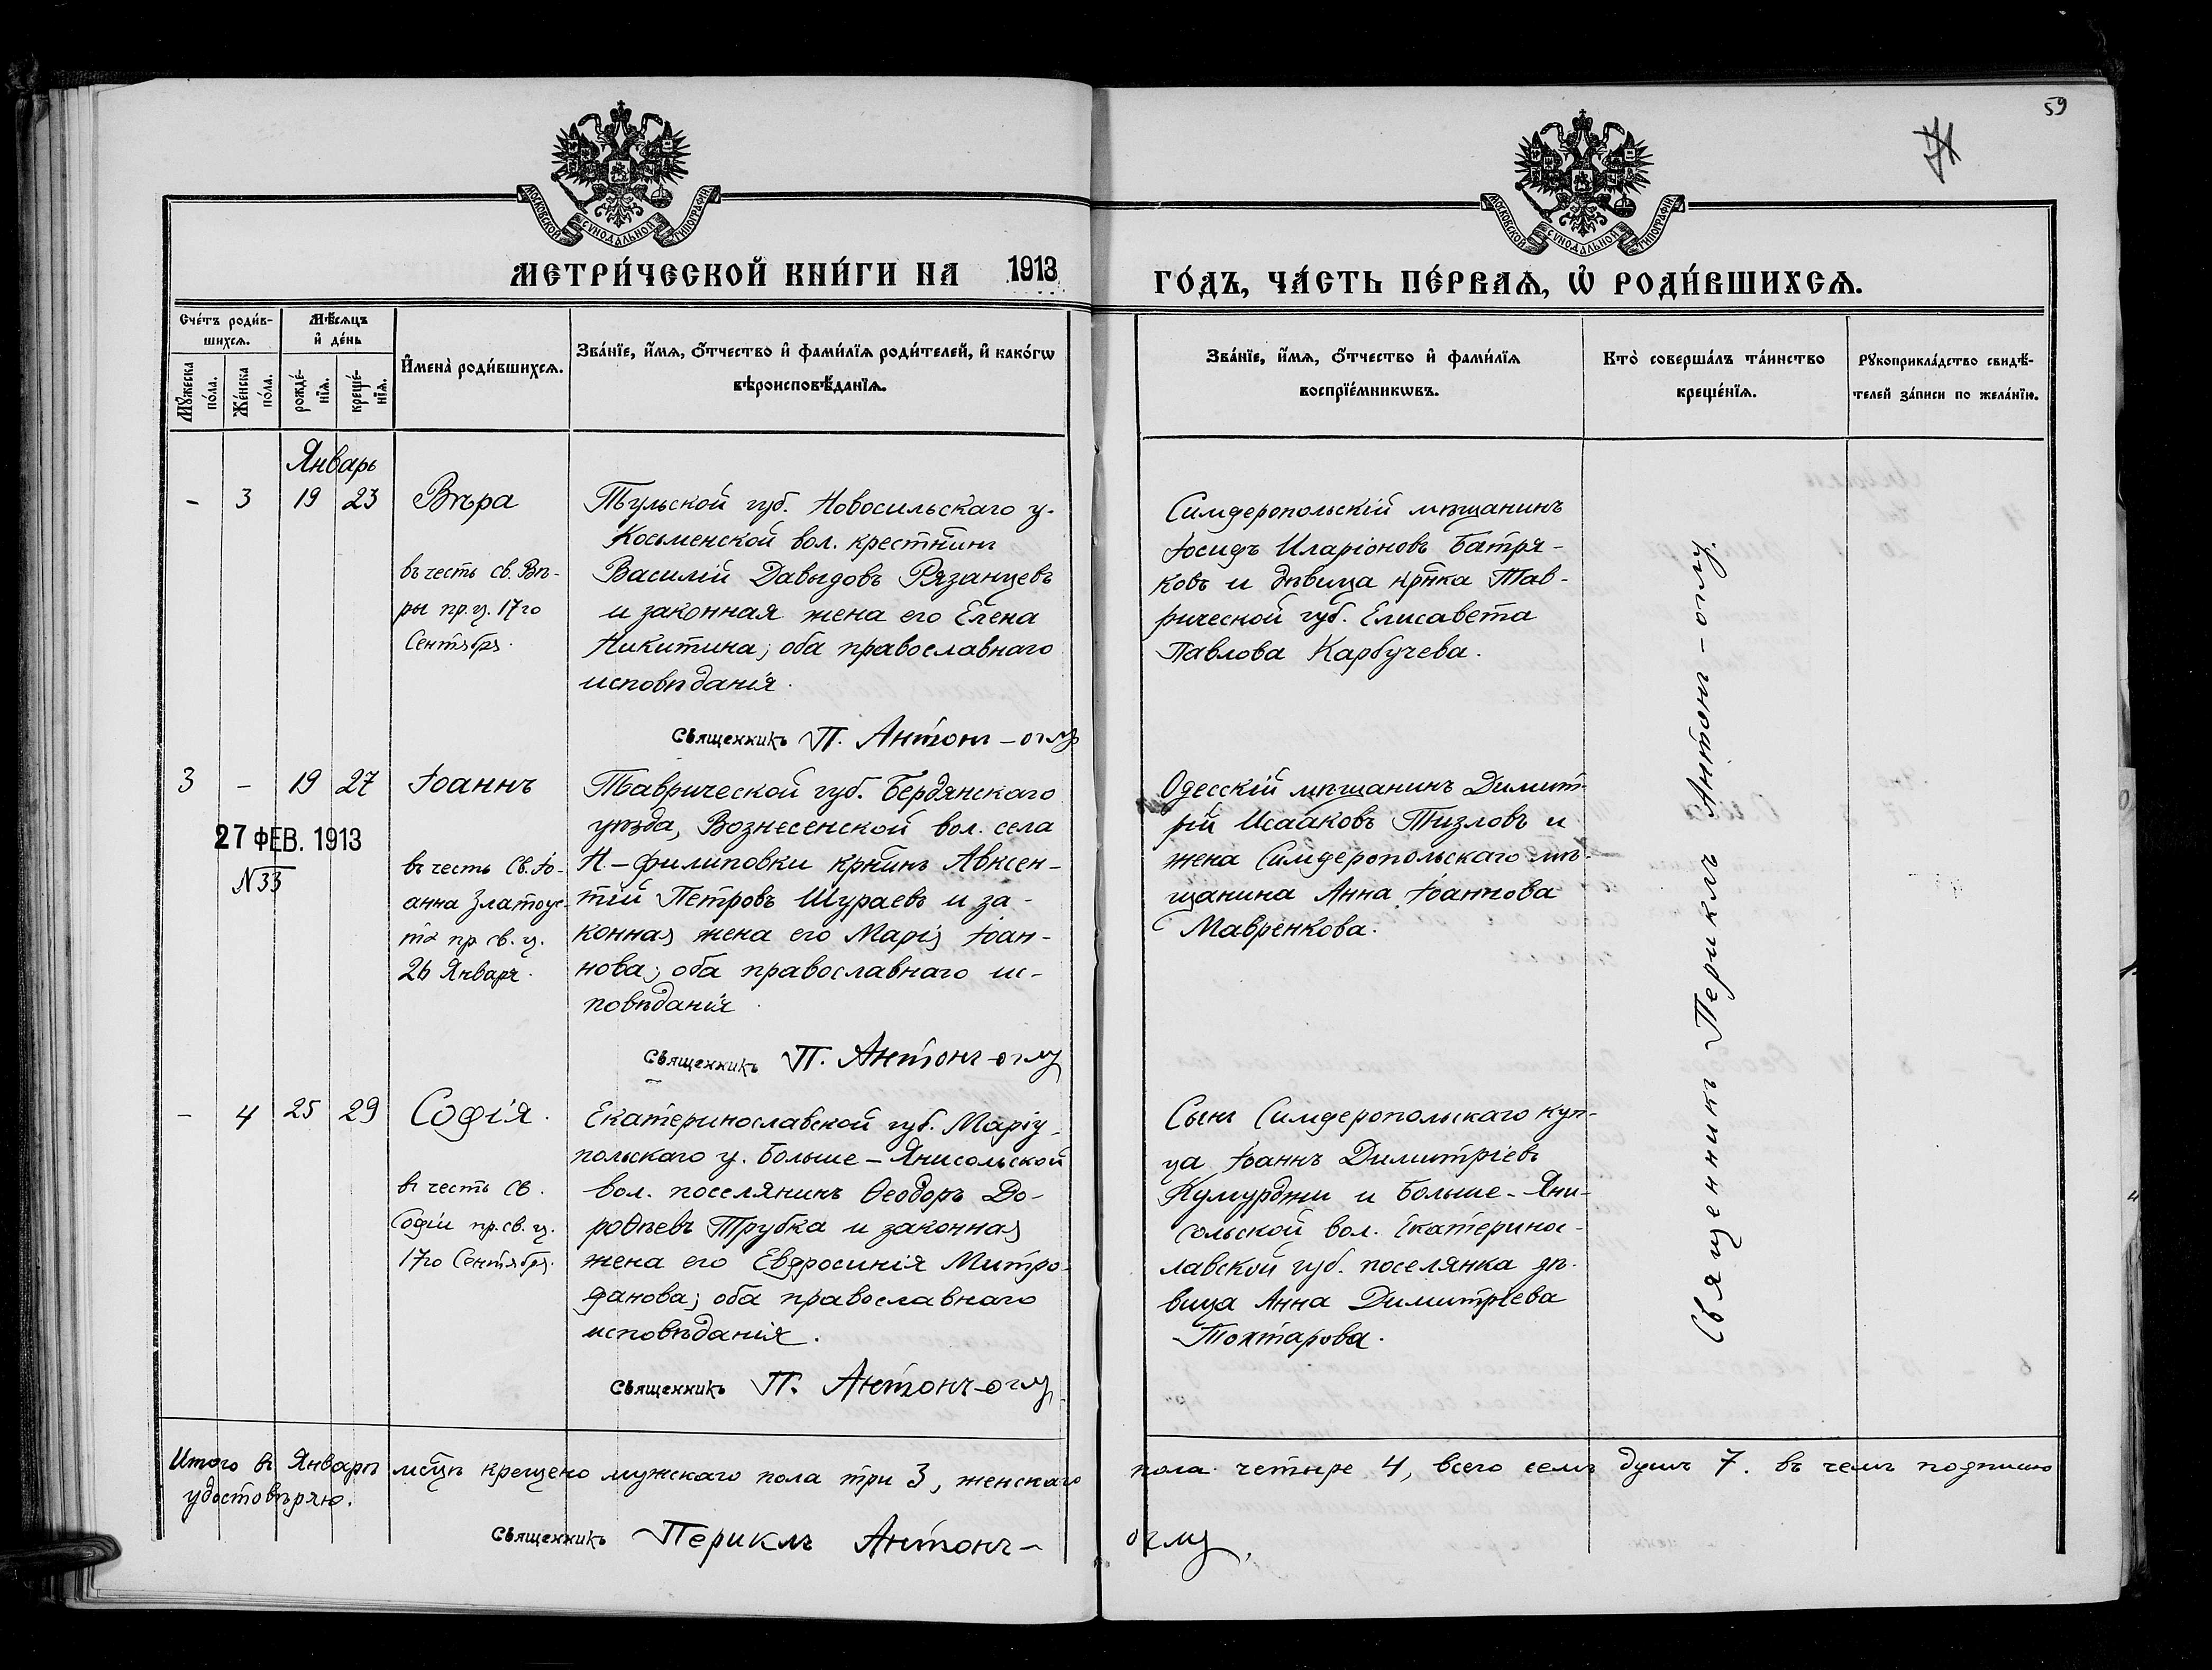 59
МОСКОВСКОЙ СѴНОДАЛЬНОЙ ТИПОГРАФІИ
МОСКОВСКОЙ СѴНОДАЛЬНОЙ ТИПОГРАФІИ
МЕТРИ́ЧЕСКОЙ КНИ́ГИ НА 1913 ГО́ДЪ, ЧА́СТЬ ПЕ́РВАѦ, Ѡ҆ РОДИ́ВШИХСѦ.
Сче́тъ роди́в-
шихсѧ.
Мꙋ́жеска
по́ла.
Же́нска
по́ла.
Мѣ́сѧцъ
и҆ де́нь
рожде́-
нїѧ.
креще́-
нїѧ.
И҆мена̀ роди́вшихсѧ.
Зва́нїе, и҆́мѧ, ѻ҆́тчество и҆ фами́лїѧ роди́телей, и҆ како́гѡ
вѣроисповѣ́данїѧ.
Зва́нїе, и҆́мѧ, ѻ҆́тчество и҆ фами́лїѧ
воспрїе́мникѡвъ.
Кто̀ соверша́лъ та́инство
креще́нїѧ.
Рꙋкоприкла́дство свидѣ́-
телей за́писи по жела́нїю.
Январь
- 3 19 23 Вѣра
въ честь св. Вѣ-
ры пр. ц. 17го
Сентября.
Тульской губ. Новосильскаго у.
Косьменской вол. крестнинъ
Василій Давыдовъ Рязанцевъ
и законная жена его Елена
Никитина; оба православнаго
исповѣданія.
Священникъ П. Антонъ-оглу
Симферопольскій мѣщанинъ
Іосифъ Иларіоновъ Батря-
ковъ и дѣвица крнка Тав-
рической губ. Елисавета
Павлова Карбучева.
3 - 19 27 Іоаннъ
27 ФЕВ. 1913
N 33
въ честь Св. Іо-
анна Златоус-
та пр. св. ц.
26 Января.
Таврической губ. Бердянскаго
уѣзда, Вознесенской вол. села
Н-Филиповки крнинъ Авксен-
тій Петровъ Шураевъ и за-
конная жена его Марія Іоан-
нова; оба православнаго ис-
повѣданія.
Священникъ П. Антонъ-оглу
Одесскій мѣщанинъ Димит-
рій Исааковъ Тизловъ и
жена Симферопольскаго мѣ-
щанина Анна Іоаннова
Мавренкова.
- 4 25 29 Софія.
въ честь св.
Софіи пр. св. ц.
17го Сентября.
Екатеринославской губ. Маріу-
польскаго у. Больше-Янисольской
вол. поселянинъ Ѳеодоръ До-
роѳѣевъ Трубка и законная
жена его Евфросинія Митро-
фанова; оба православнаго
исповѣданія.
Священникъ П. Антонъ-оглу
Сынъ Симферопольскаго куп-
ца Іоаннъ Димитріевъ
Кумурджи и Больше-Яни-
сольской вол. Екатеринос-
лавской губ. поселянка дѣ-
вица Анна Димитріева
Тохтарова.
Священникъ Периклъ Антонъ-оглу.
Итого въ Январѣ мсцѣ крещено мужскаго пола три 3, женскаго пола четыре 4, всего семь душъ 7. въ чемъ подписью
удостовѣряю.
Священникъ Периклъ Антонъ-оглу.